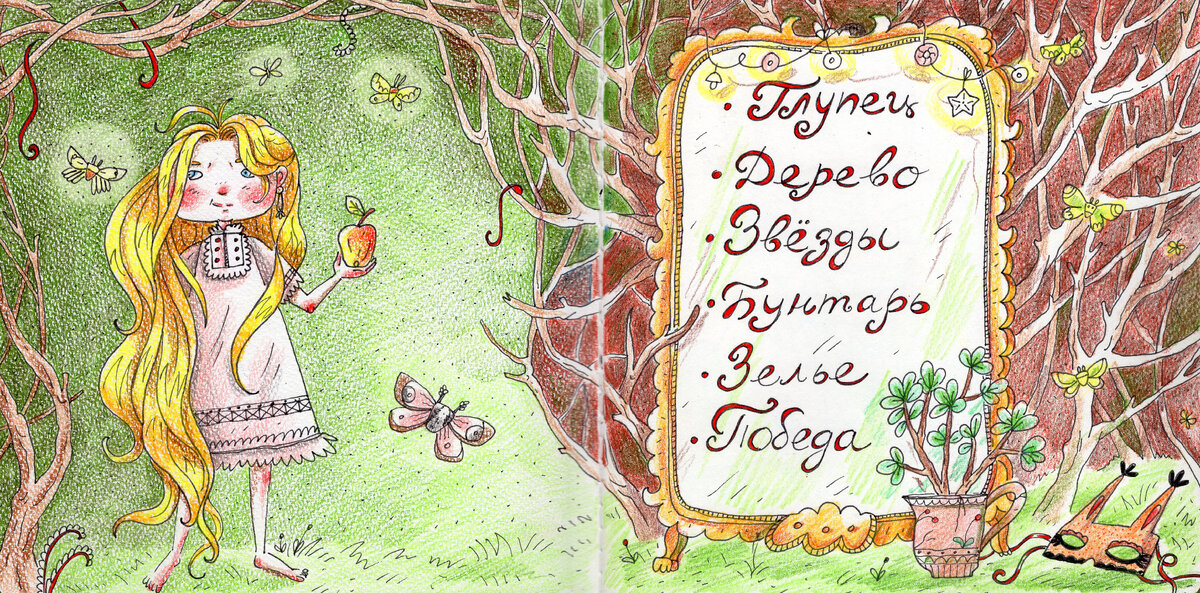 · Глупец
· Дерево
· Звёзды
· Бунтарь
· Зелье
· Победа